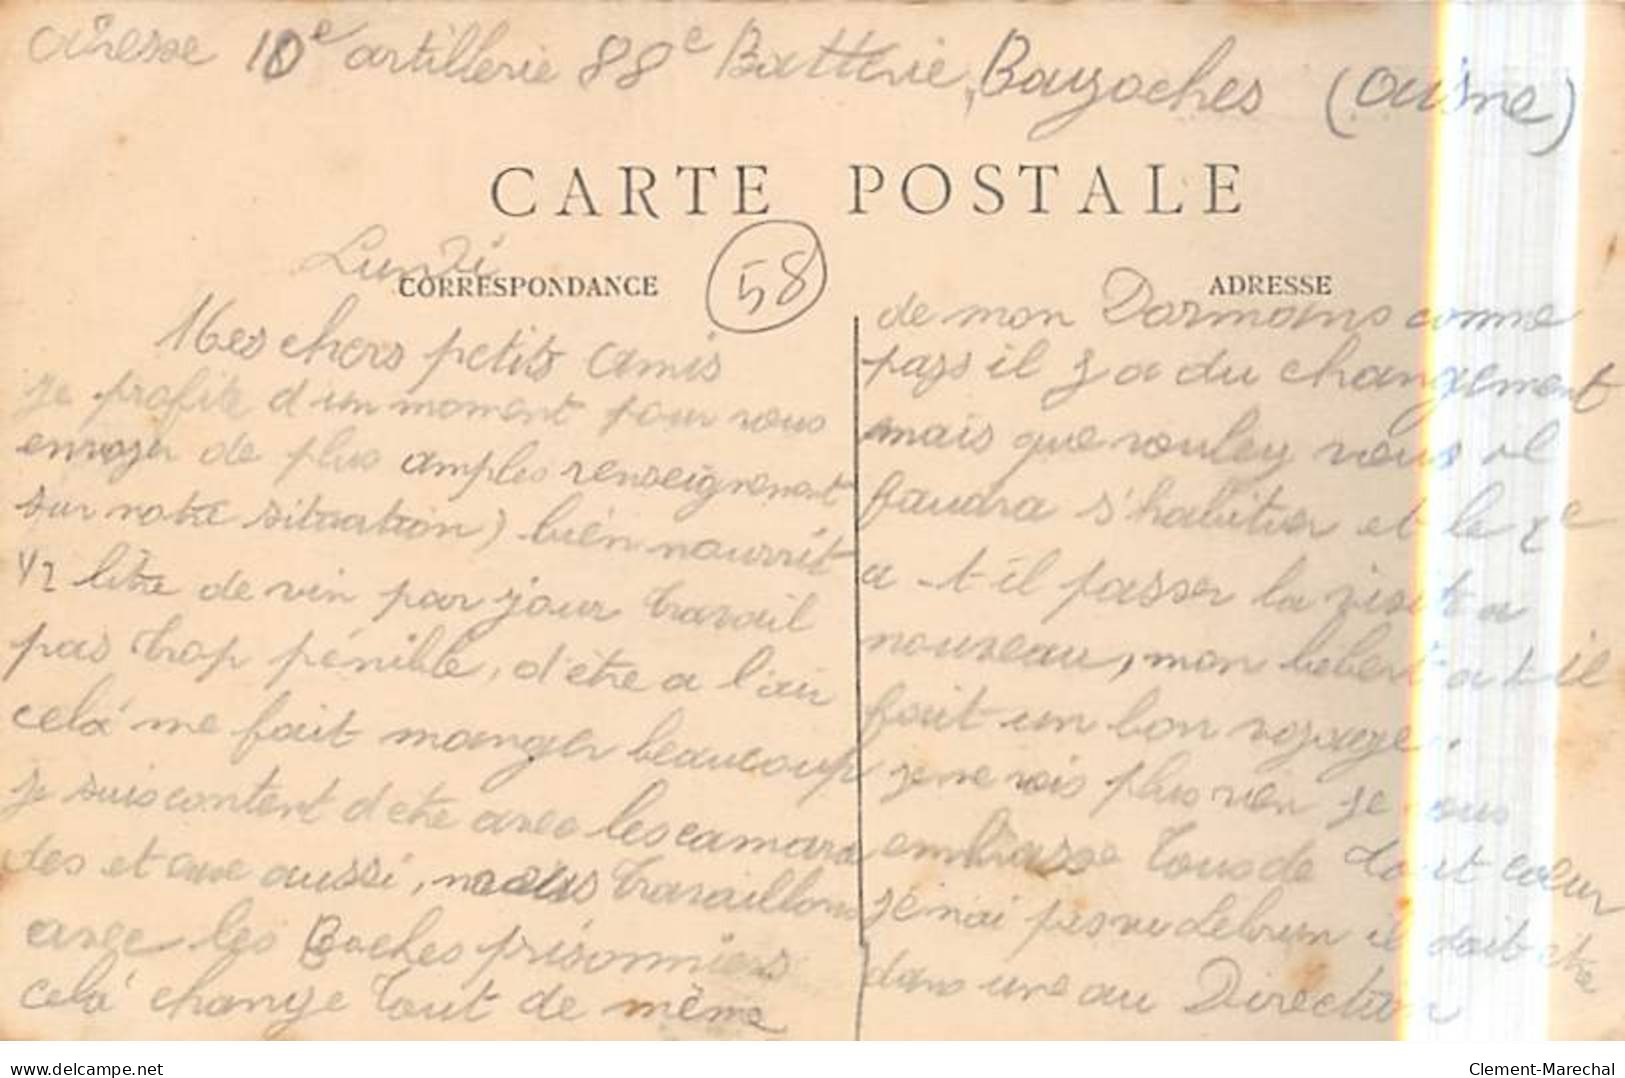 adresse 10e artillerie 88e Battrie, Bazoches (aisne)
CARTE POSTALE
Lundi
CORRESPONDANCE
58
ADRESSE
Mes chers petits amis
je profite d'un moment pour vous
envoyer de plus amples renseignement
sur notre situation) bien nourrit
1/2 litre de vin par jour travail
pas trop pénible, d'être a l'air
celà me fait manger beaucoup
je suis content d'etre avec les camara
des et eux aussi, nous travaillons
avec les Boches prisonniers
celà change tout de même
de mon Dormans comme
pays il y a du changement
mais que vouley vous il
faudra s'habituer et le
a-t-il passer la visite a
nouveau, mon bebert a t il
fait un bon voyage.
je ne vois plus rien je vous
embrasse tous de tout coeur
je n'ai pas vu Lebrun il doit etre
dans une au Direction
delcampe.net
Clement-Marechal